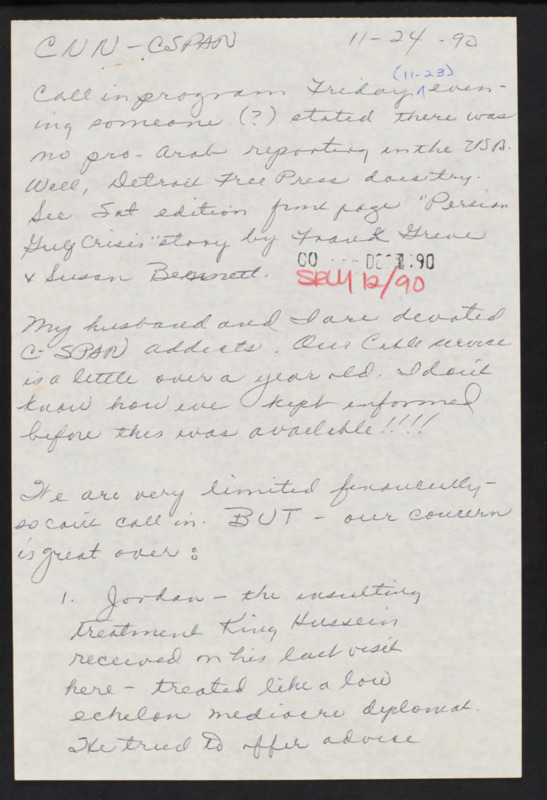 CNN - CSPAN 11-24-90
(11-23)
Call in program Friday, even-
ing someone (?) stated there was
no pro-Arab reporting in the USA.
Well, Detroit Free Press does try.
See Sat edition front page "Persian
Gulf Crisis" story by Frank Greve
& Susan Bennett.
CO --- DEC :90
12/90
My husband and I are devoted
C-SPAN addicts. Our Cable service
is a little over a year old. I don't
know how we kept informed
before this was available!!!!
We are very limited financially -
so can't call in. BUT - our concern
is great over:
1. Jordan - the insulting
treatment King Hussein
received on his last visit
here - treated like a low
echelon mediocre diplomat.
He tried to offer advice